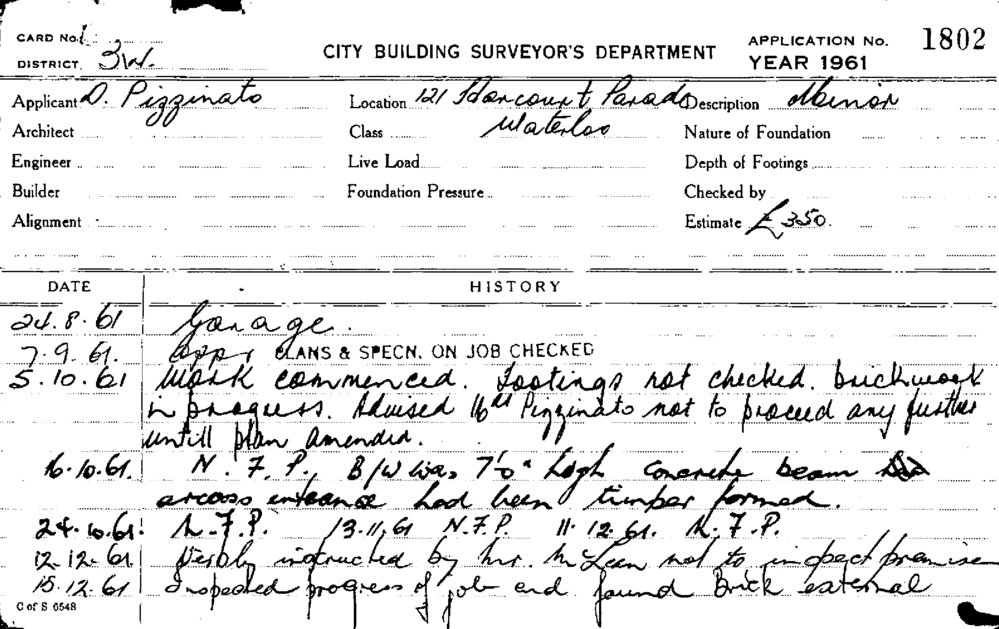 CARD No. 1
DISTRICT. 3W.
CITY BUILDING SURVEYOR'S DEPARTMENT
APPLICATION No. 1802
YEAR 1961
Applicant D. Pizzinato Location 121 Harcourt Parade Description Minor
Architect Class Waterloo Nature of Foundation
Engineer Live Load Depth of Footings
Builder Foundation Pressure Checked by
Alignment Estimate £350.
DATE HISTORY
24.8.61 Garage.
7.9.61. appr PLANS & SPECN. ON JOB CHECKED
5.10.61 Work commenced. Footings not checked. brickwork
in progress. Advised Pizzinato not to proceed any further
untill plan amended.
16.10.61. N.F.P., B/W was 7'0" high concrete beam
arcoss entrance had been timber formed.
24.10.61. N.F.P. 13.11.61 N.F.P. 11.12.61. N.F.P.
12.12.61. instructed by Mr. McLean not to inspect premise
15.12.61 Inspected progress of job and found Brick external
C of S 6548